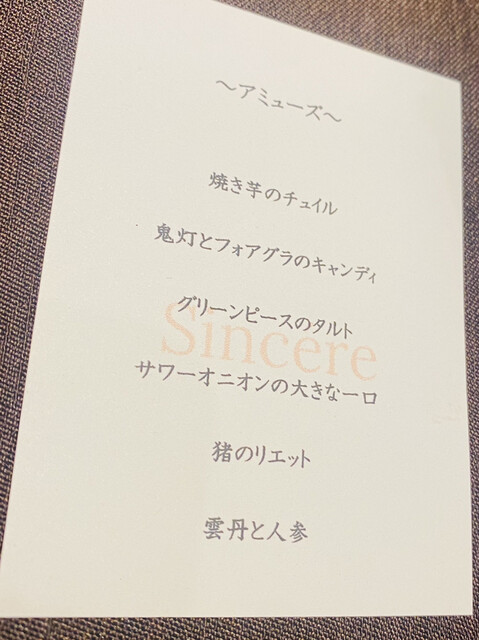 ～アミューズ～
焼き芋のチュイル
鬼灯とフォアグラのキャンディ
グリーンピースのタルト
Sincere
サワーオニオンの大きな一口
猪のリエット
雲丹と人参